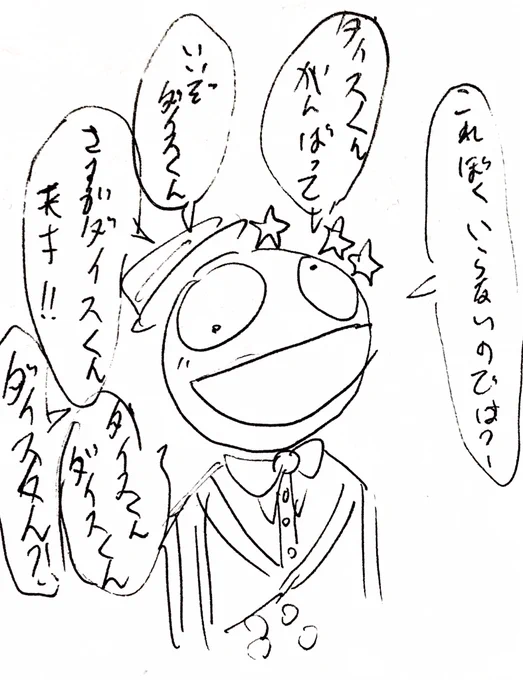 これぼくいらないのでは?
ダイスくん
がんばって
いいぞ
ダイスくん
さすがダイスくん
大好き!!
ダイスくん
ダイスくん
ダイスくん?!